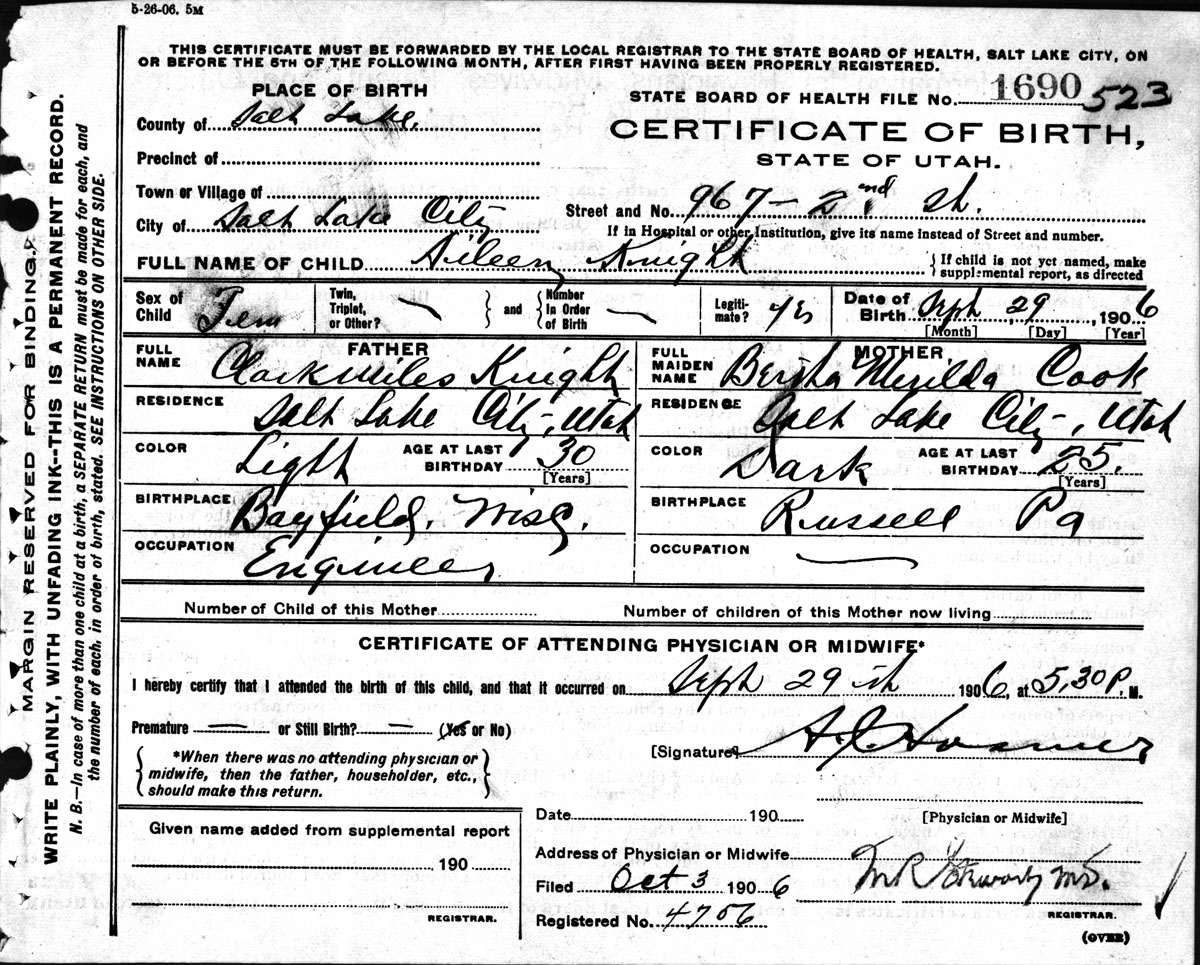 5-26-06. 5M
THIS CERTIFICATE MUST BE FORWARDED BY THE LOCAL REGISTRAR TO THE STATE BOARD OF HEALTH, SALT LAKE CITY, ON
OR BEFORE THE 5TH OF THE FOLLOWING MONTH, AFTER FIRST HAVING BEEN PROPERLY REGISTERED.
PLACE OF BIRTH
STATE BOARD OF HEALTH FILE No. 1690 523
County of Salt Lake.
CERTIFICATE OF BIRTH,
STATE OF UTAH.
Precinct of
Town or Village of
Street and No. 967 - 2nd St.
City of Salt Lake City
If in Hospital or other Institution, give its name instead of Street and number.
FULL NAME OF CHILD Aileen Knight
{ If child is not yet named, make
supplemental report, as directed
Sex of Child Fem
Twin, Triplet, or Other? —
} and { Number In Order of Birth —
Legiti-mate? yes
Date of Birth Sept 29, 1906
[Month] [Day] [Year]
FATHER
FULL NAME Clark Miles Knight
RESIDENCE Salt Lake City, Utah
COLOR Light
AGE AT LAST BIRTHDAY 30
[Years]
BIRTHPLACE Bayfield, Wisc.
OCCUPATION Engineer
MOTHER
FULL MAIDEN NAME Bertha Merilda Cook
RESIDENCE Salt Lake City, Utah
COLOR Dark
AGE AT LAST BIRTHDAY 25.
[Years]
BIRTHPLACE Russell Pa
OCCUPATION —
Number of Child of this Mother
Number of children of this Mother now living
CERTIFICATE OF ATTENDING PHYSICIAN OR MIDWIFE*
I hereby certify that I attended the birth of this child, and that it occurred on Sept 29th 1906, at 5,30 P. M.
Premature — or Still Birth? — (Yes or No)
[Signature]
{ *When there was no attending physician or
midwife, then the father, householder, etc.,
should make this return. }
[Physician or Midwife]
Date 190
Given name added from supplemental report
190
REGISTRAR.
Address of Physician or Midwife
Filed Oct 3 1906
M.D.
REGISTRAR.
Registered No. 4706
(OVER)
MARGIN RESERVED FOR BINDING.
WRITE PLAINLY, WITH UNFADING INK--THIS IS A PERMANENT RECORD.
N. B.—In case of more than one child at a birth, a SEPARATE RETURN must be made for each, and
the number of each, in order of birth, stated. SEE INSTRUCTIONS ON OTHER SIDE.